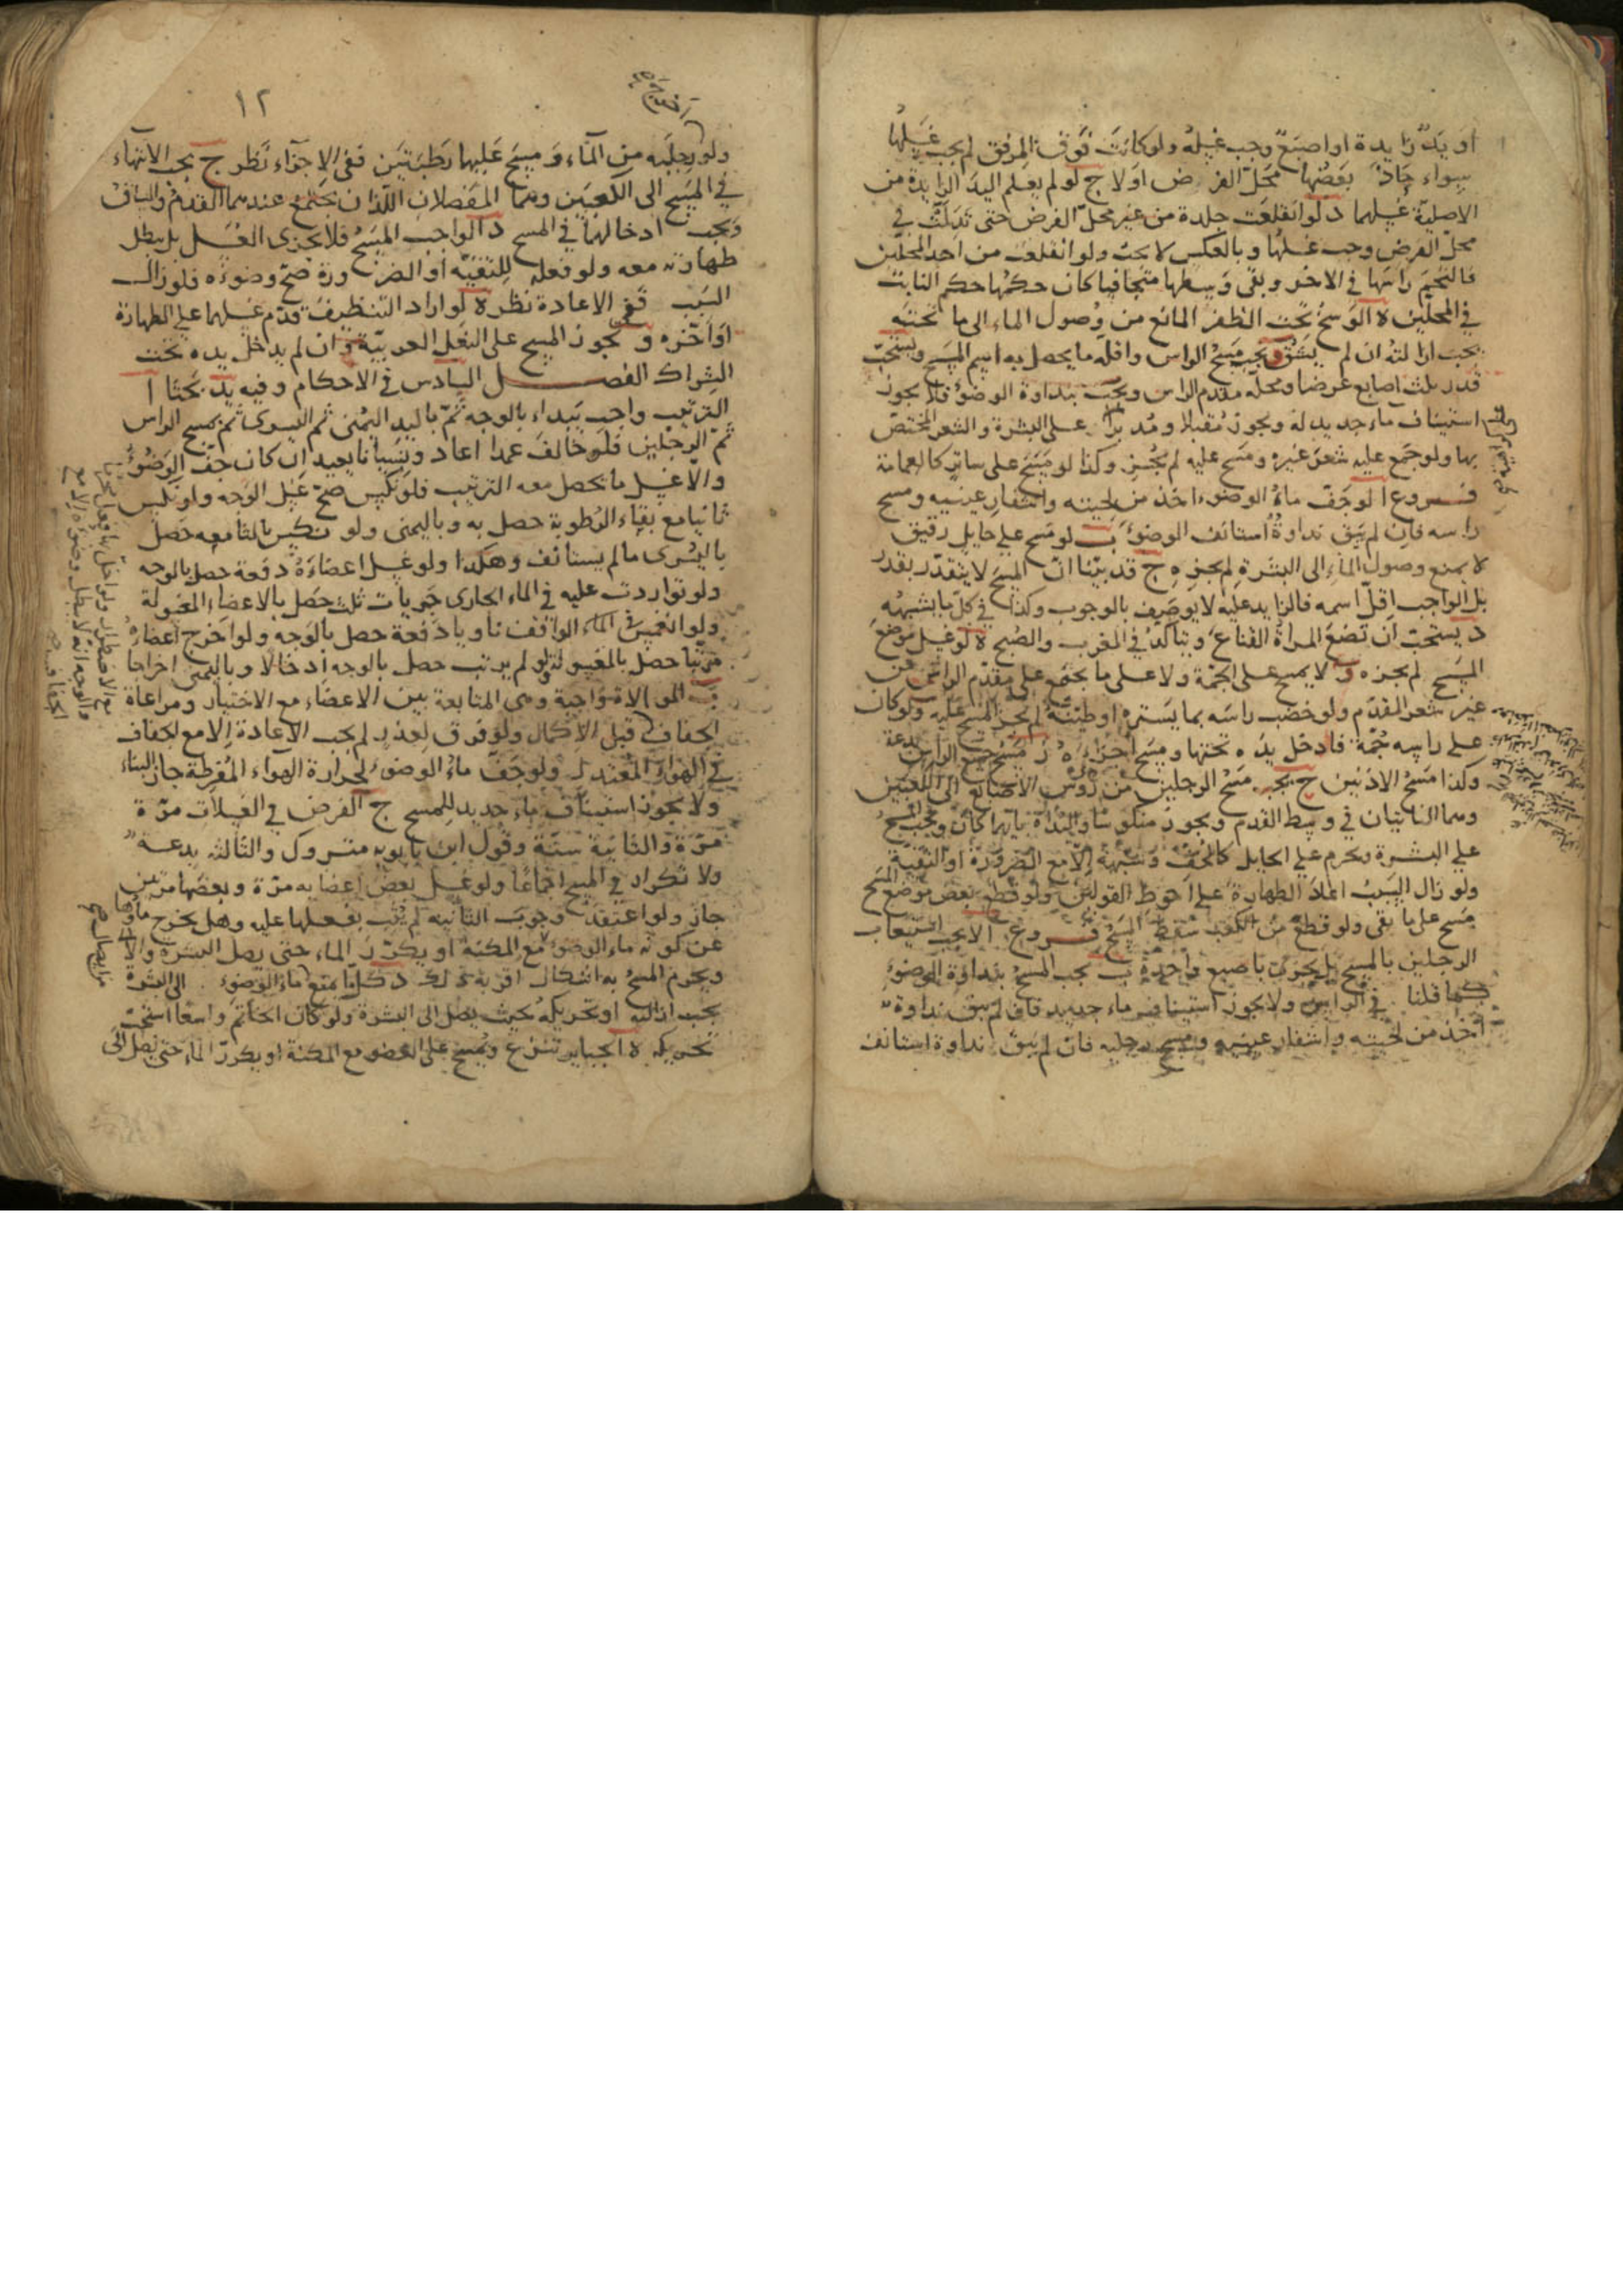 او يد زايدة او اصبع وجب غسله ولو كانت فوق المرفق لم يجب غسلها
سواء حاذى بعضها محل الفرض اولا ج لو لم يعلم اليد الزايدة من
الاصلية غسلهما د لو انقلعت جلدة من غير محل الفرض حتى تدلت في
محل الفرض وجب غسلها وبالعكس لا يجب ولو انقلعت من احد المحلين
فالتحم راسها في الاخر وبقى وسطها متجافيا كان حكمها حكم النابت
في المحلين ه الوسخ تحت الظفر المانع من وصول الماء الى ما تحته
يجب ازالته ان لم يشق و يجب مسح الراس واقله ما يحصل به اسم المسح ويستحب
قدر ثلث اصابع عرضا ومحله مقدم الراس ويجب بنداوة الوضوء فلا يجوز
استيناف ماء جديد له ويجوز مقبلا ومدبرا على البشرة والشعر المختص
بها ولو جمع عليه شعر غيره ومسح عليه لم يجز وكذا لو مسح على ساتر كالعمامة
فروع ا لو جف ماء الوضوء اخذ من لحيته واشفار عينيه ومسح
راسه فان لم يبق نداوة استانف الوضوء ب لو مسح على حايل رقيق
لا يمنع وصول الماء الى البشرة لم يجزه ج قد بينا ان المسح لا يتقدر بقدر
بل الواجب اقل اسمه فالزايد عليه لا يوصف بالوجوب وكذا في كل ما يشبهه
د يستحب ان تضع المراة القناع ويتاكد في المغرب والصبح ه لو غسل موضع
المسح لم يجزه و لا يمسح على الجمة ولا على ما يجتمع على مقدم الراس من
غير شعر المقدم ولو خضب راسه بما يستره او طينه لم يجز المسح عليه ولو كان
على راسه جمة فادخل يده تحتها ومسح اجزاه ز مسح جميع الراس بدعة
وكذا مسح الاذنين ح يجب مسح الرجلين من رؤس الاصابع الى الكعبين
وهما النابتان في وسط القدم ويجوز منكوسا والبداة بايهما كان ويجب المسح
على البشرة ويحرم على الحايل كالخف وشبهه الا مع الضرورة او التقية
ولو زال السبب اعاد الطهارة على احوط القولين ولو قطع بعض موضع المسح
مسح على ما بقى ولو قطع من الكعب سقط المسح فروع ا لا يجب استيعاب
الرجلين بالمسح بل يجزى باصبع واحدة ب يجب المسح بنداوة الوضوء
كما قلنا في الراس ولا يجوز استيناف ماء جديد فان لم يبق نداوة
اخذ من لحيته واشفار عينيه ومسح رجليه فان لم يبق نداوة استانف
١٢
ولو رجليه من الماء ومسح عليهما رطبتين ففى الاجزاء نظر ج يجب الانتهاء
في المسح الى الكعبين وهما المفصلان اللذان يجتمع عندهما القدم والساق
ويجب ادخالهما في المسح د الواجب المسح فلا يجزى الغسل بل يبطل
طهارته معه ولو فعله للتقية او الضرورة صح وضوءه فلو زال
السبب ففى الاعادة نظر ه لو اراد التنظيف قدم غسلهما على الطهارة
او اخره و يجوز المسح على النعل العربية وان لم يدخل يده تحت
الشراك الفصل السادس في الاحكام وفيه يد بحثا ا
الترتيب واجب يبداء بالوجه ثم باليد اليمنى ثم اليسرى ثم يمسح الراس
ثم الرجلين فلو خالف عمدا اعاد ونسيانا يعيد ان كان جف الوضوء
والا غسل ما يحصل معه الترتيب فلو نكس صح غسل الوجه ولو نكس
ثانيا مع بقاء الرطوبة حصل به وباليمنى ولو نكس ثالثا معه حصل
باليسرى ما لم يستانف وهكذا ولو غسل اعضاءه دفعة حصل بالوجه
ولو تواردت عليه في الماء الجارى جريات ثلث حصل بالاعضاء المغسولة
ولو انغمس في الماء الواقف ناويا دفعة حصل بالوجه ولو اخرج اعضاءه
مرتبا حصل بالمغسولة ولو لم يرتب حصل بالوجه ادخالا وباليمنى اخراجا
ب الموالاة واجبة وهى المتابعة بين الاعضاء مع الاختيار ومراعاة
الجفاف قبل الاكمال ولو فرق لعذر لم يجب الاعادة الا مع الجفاف
في الهواء المعتدل ولو جف ماء الوضوء لحرارة الهواء المفرطة جاز البناء
ولا يجوز استيناف ماء جديد للمسح ج الفرض في الغسلات مرة
مرة والثانية سنة وقول ابن بابويه متروك والثالثة بدعة
ولا تكرار في المسح اجماعا ولو غسل بعض اعضايه مرة وبعضها مرتين
جاز ولو اعتقد وجوب الثانية لم يثب بفعلها عليه وهل يخرج ماؤها
عن كونه ماء الوضوء مع المكنة او يكرر الماء حتى يصل البشرة والا
ويحرم المسح به اشكال اقربه ذلك د كلما يمنع ماء الوضوء الى البشرة
يجب ازالته او تحريكه بحيث يصل الى البشرة ولو كان الخاتم واسعا استحب
تحريكه ه الجباير تنزع ويمسح على العضو مع المكنة او يكرر الماء حتى يصل الى